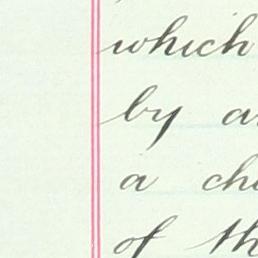 which
by a
a ch
of th